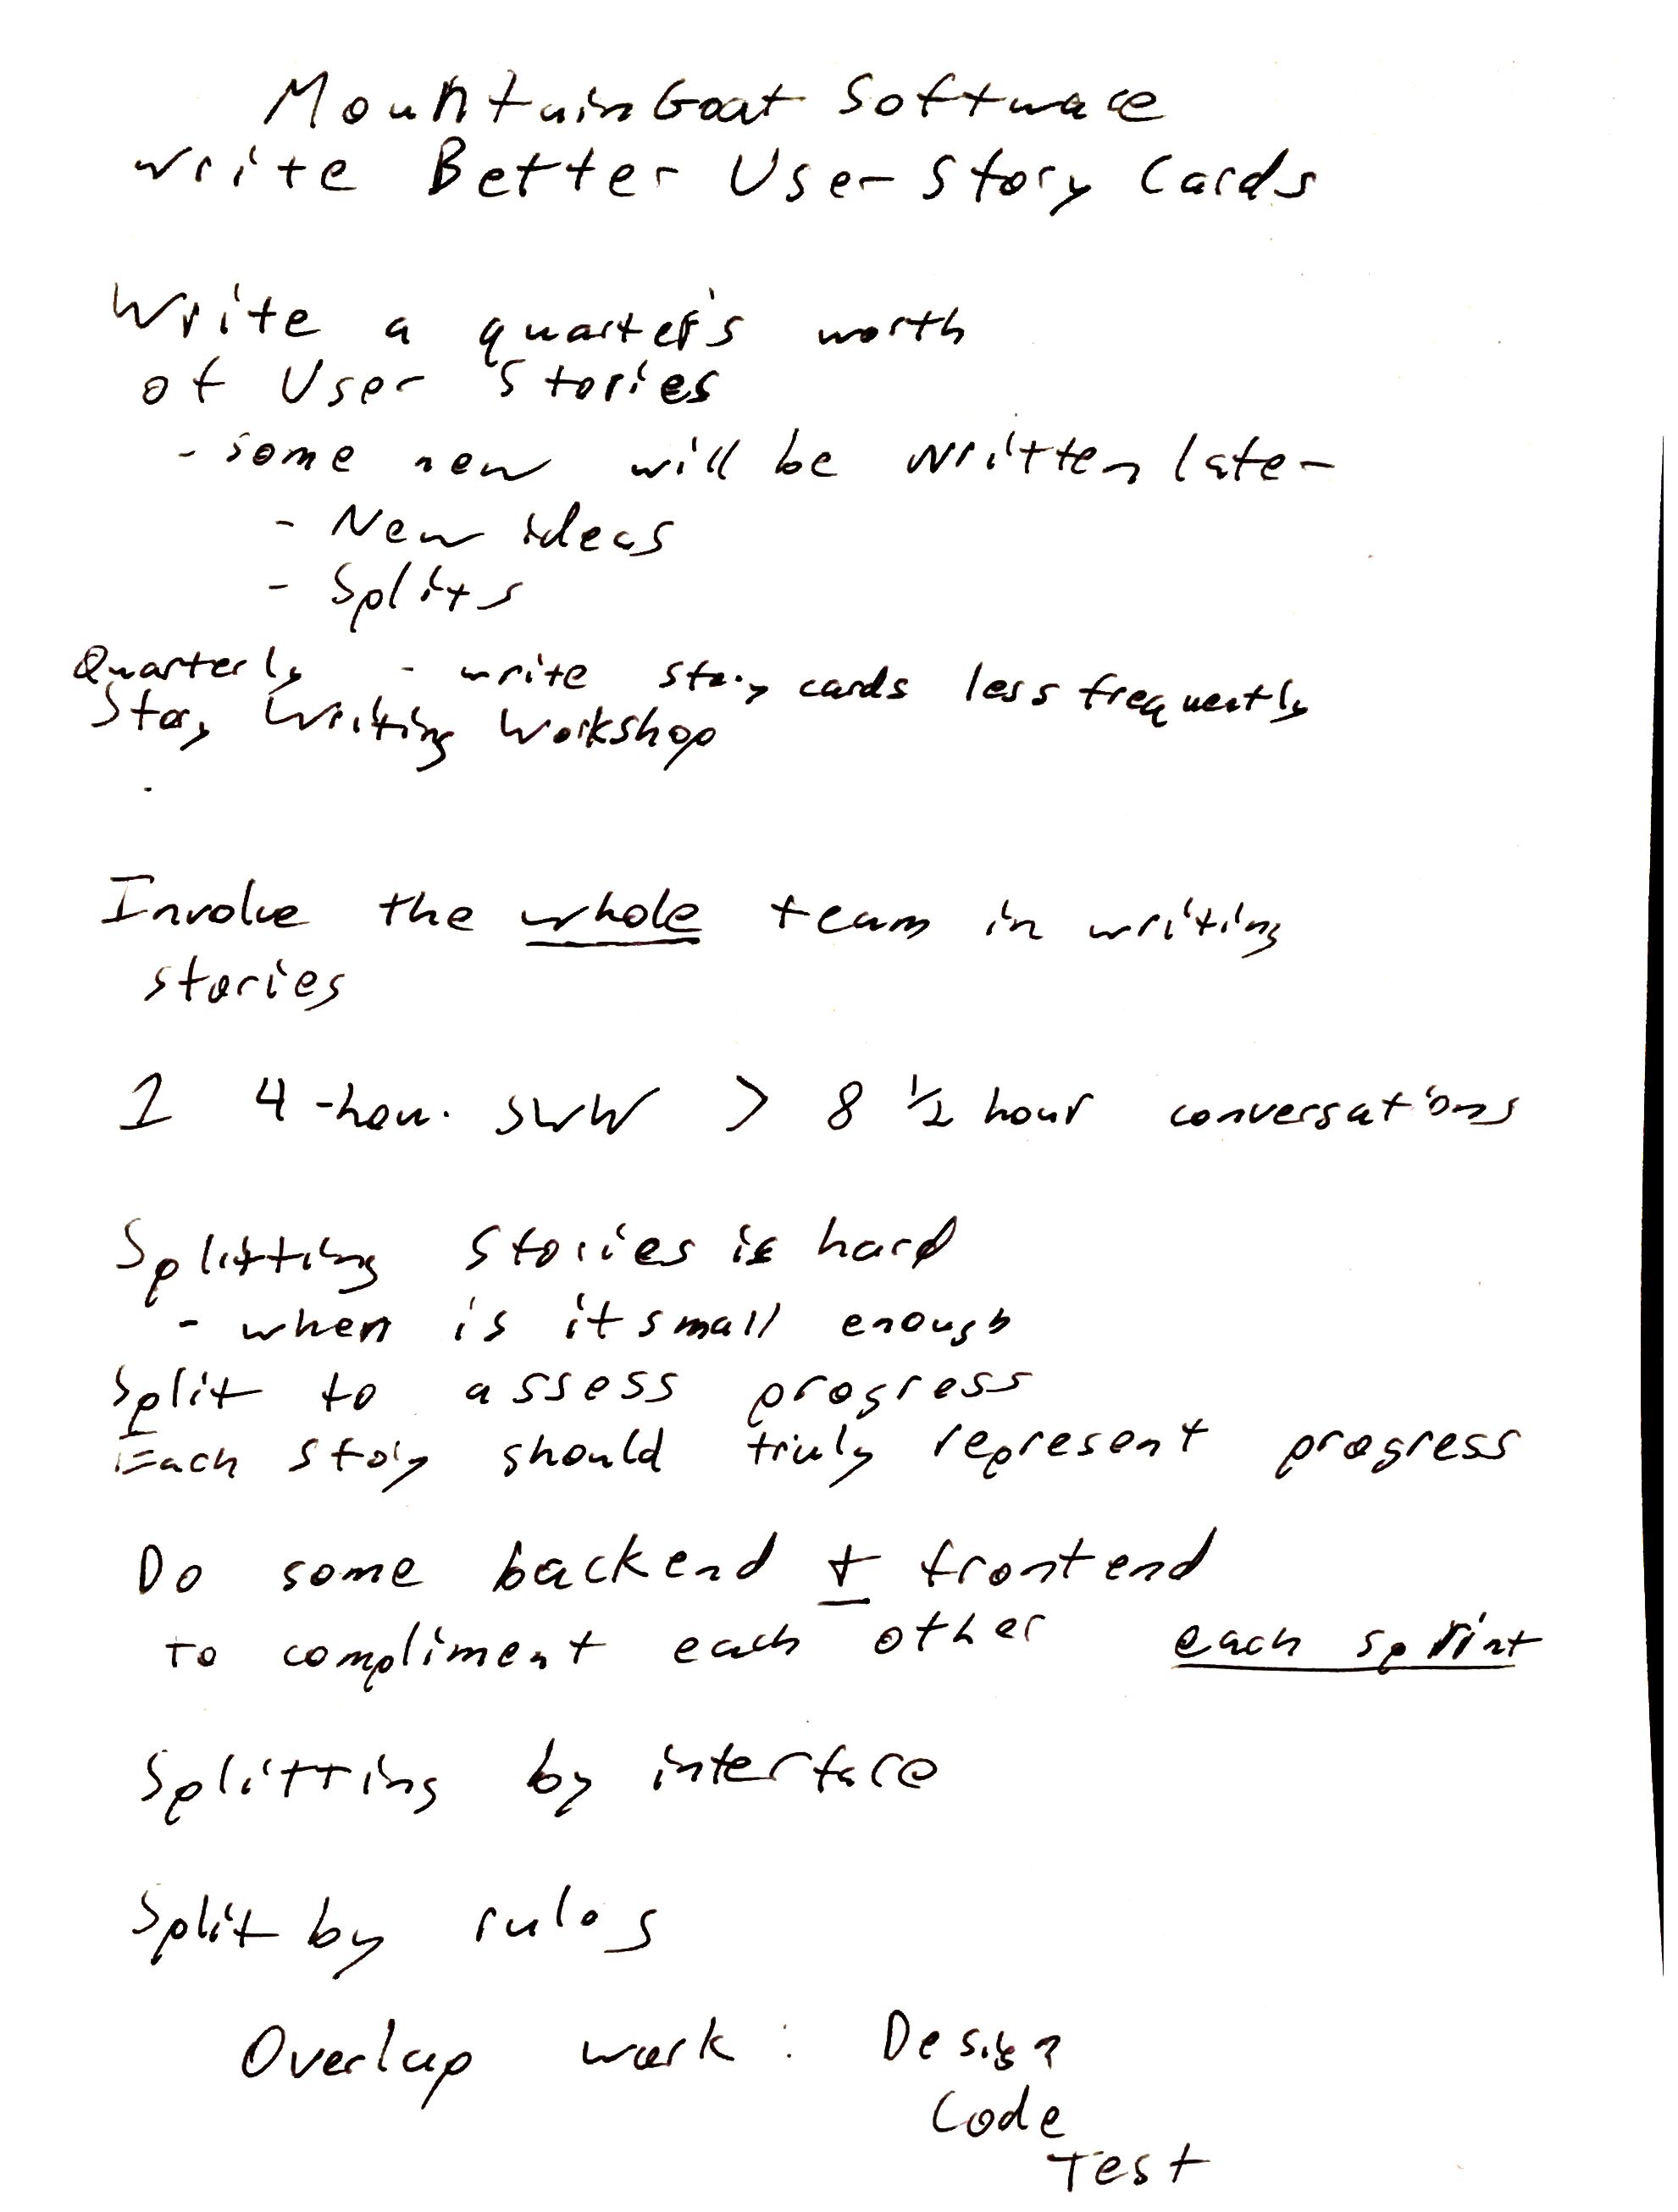 Mountain Goat Software
Write Better User Story Cards
Write a quarter's worth
of User Stories
- some new will be written later
- New ideas
- Splits
Quarterly - write story cards less frequently
Story Writing Workshop
Involve the whole team in writing
stories
1 4-hour SWW > 8 1/2 hour conversations
Splitting Stories is hard
- when is it small enough
Split to assess progress
Each story should truly represent progress
Do some backend + frontend
To compliment each other each sprint
Splitting by interface
Split by rules
Overlap work: Design
Code
Test